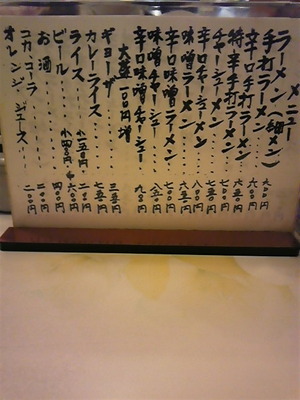 メニュー
ラーメン(細メン)
手打ラーメン 六〇〇円
辛口手打ラーメン 六〇〇円
特辛手打ラーメン 六五〇円
チャーシューメン 七五〇円
辛口チャーシューメン 八〇〇円
味噌ラーメン 六五〇円
辛口味噌ラーメン 七〇〇円
味噌チャーシュー 八五〇円
辛口味噌チャーシュー
大盛一〇〇円増
ギョーザ 三五〇円
カレーライス 七五〇円
ライス 小一五〇円 二〇〇円
ビール 小四五〇円 大六〇〇円
お酒 四〇〇円
コカコーラ 二〇〇円
オレンジジュース 二〇〇円